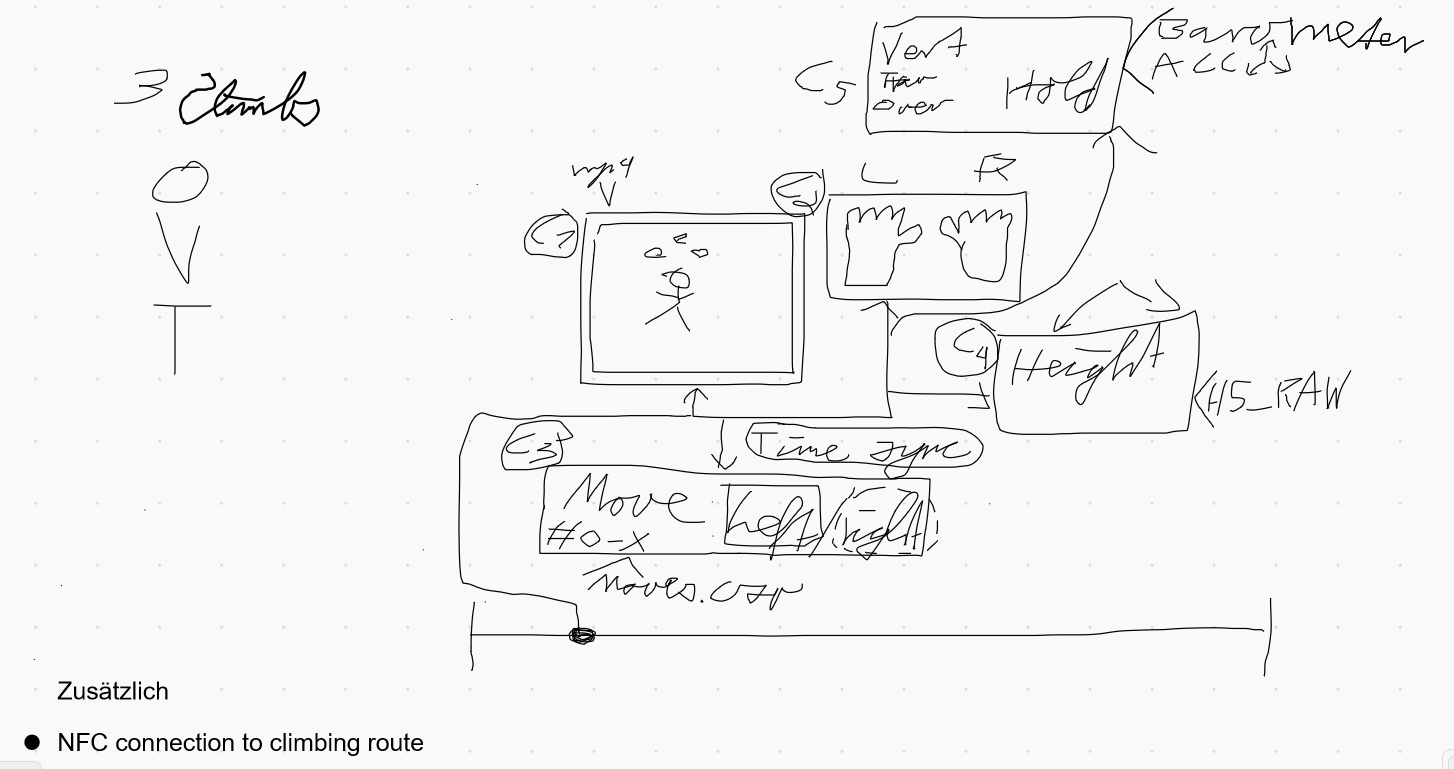 3 Climbs
O
V
T
mp4
C1
C2
L
R
C5
Vert
Trav
Over
Hold
Barometer
ACC
C4
Height
H5_RAW
Time sync
C3
Move
#0-x
Left/right
moves.csv
Zusätzlich
● NFC connection to climbing route